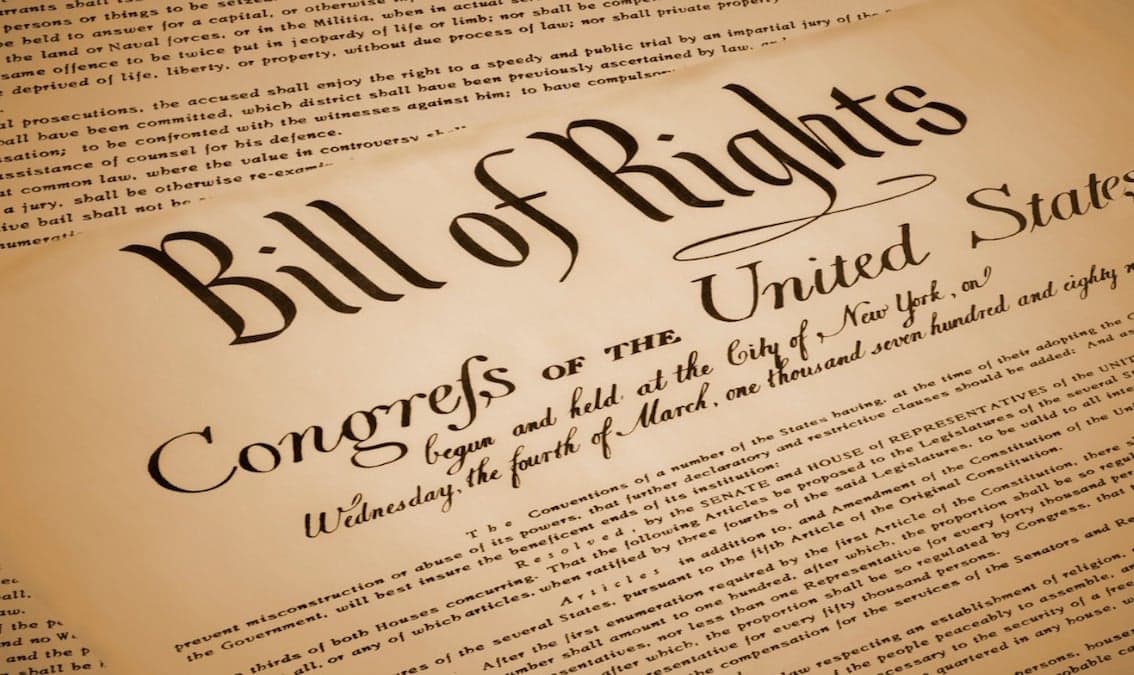 rrants shall
persons or things to be seize
be held to answer for a capital, or otherwise
the land or Naval forces, or in the Militia, when in actual
same offence to be twice put in jeopardy of life or limb; nor shall be
deprived of life, liberty, or property, without due process of law; nor shall private property
al prosecutions, the accused shall enjoy the right to a speedy and public trial by an impartial jury of the
hall have been committed, which district shall have been previously ascertained by law,
sation; to be confronted with the witnesses against him; to have compulsor
assistance of counsel for his defence.
at common law, where the value in controversy
a jury, shall be otherwise re-exam
ive bail shall not be
Bill of Rights
Congreſs OF THE United States
begun and held at the City of New York, on
Wednesday, the fourth of March, one thousand seven hundred and eighty n
The Conventions of a number of the States having, at the time of their adopting the C
prevent misconstruction or abuse of its powers, that further declaratory and restrictive clauses should be added: And as
the Government, will best insure the beneficent ends of its institution:
Resolved, by the SENATE and HOUSE of REPRESENTATIVES of the UNIT
thirds of both Houses concurring. That the following Articles be proposed to the Legislatures of the several S
all, or any of which articles, when ratified by three fourths of the said Legislatures, to be valid to all inte
Articles in addition to, and Amendment of the Constitution of the Uni
res of the several States, pursuant to the fifth Article of the Original Constitution.
After the first enumeration required by the first Article of the Constitution, there s
mber shall amount to one hundred, after which, the proportion shall be so regul
sentatives, nor less than one Representative for every forty thousand per
after which, the proportion shall be so regulated by Congress, that
resentative for every fifty thousand persons.
the compensation for the services of the Senators and Re
law respecting an establishment of religion,
of the people peaceably to assemble, an
necessary to the security of a free
quartered in any house,
persons, house
obable ca
all.
aw.
of the p
and no W
and the p
shall be i